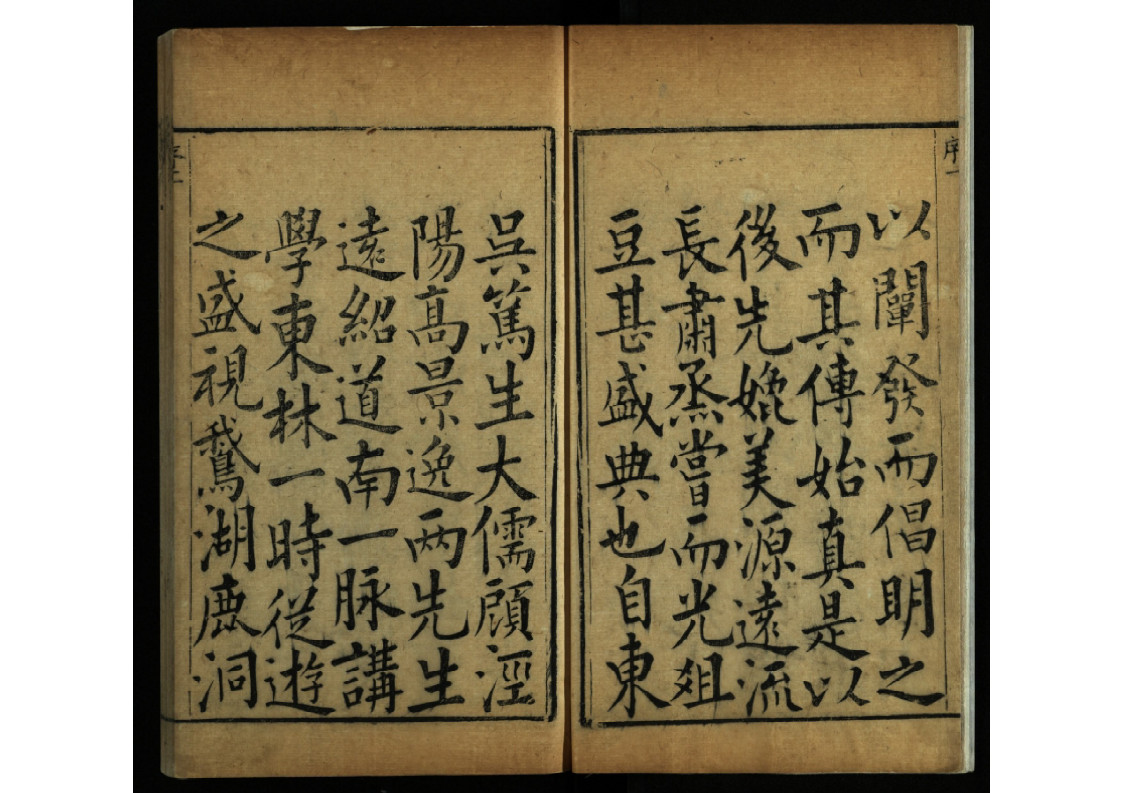 序一
以闡發而倡明之
而其傳始真是以
後先媲美源遠流
長肅烝嘗而光俎
豆甚盛典也自東
吳篤生大儒顧涇
陽高景逸两先生
遠紹道南一脉講
學東林一時從遊
之盛視鵞湖鹿洞
序二